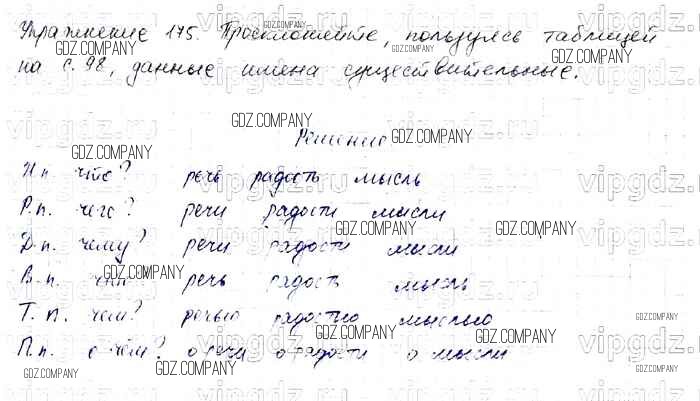 Упражнение 175. Просклоняйте, пользуясь таблицей
на с. 98, данные имена существительные.
Решение
И.п. что? речь радость мысль
Р.п. чего? речи радости мысли
Д.п. чему? речи радости мысли
В.п. что? речь радость мысль
Т.п. чем? речью радостью мыслью
П.п. о чём? о речи о радости о мысли
GDZ.COMPANY
vipgdz.ru